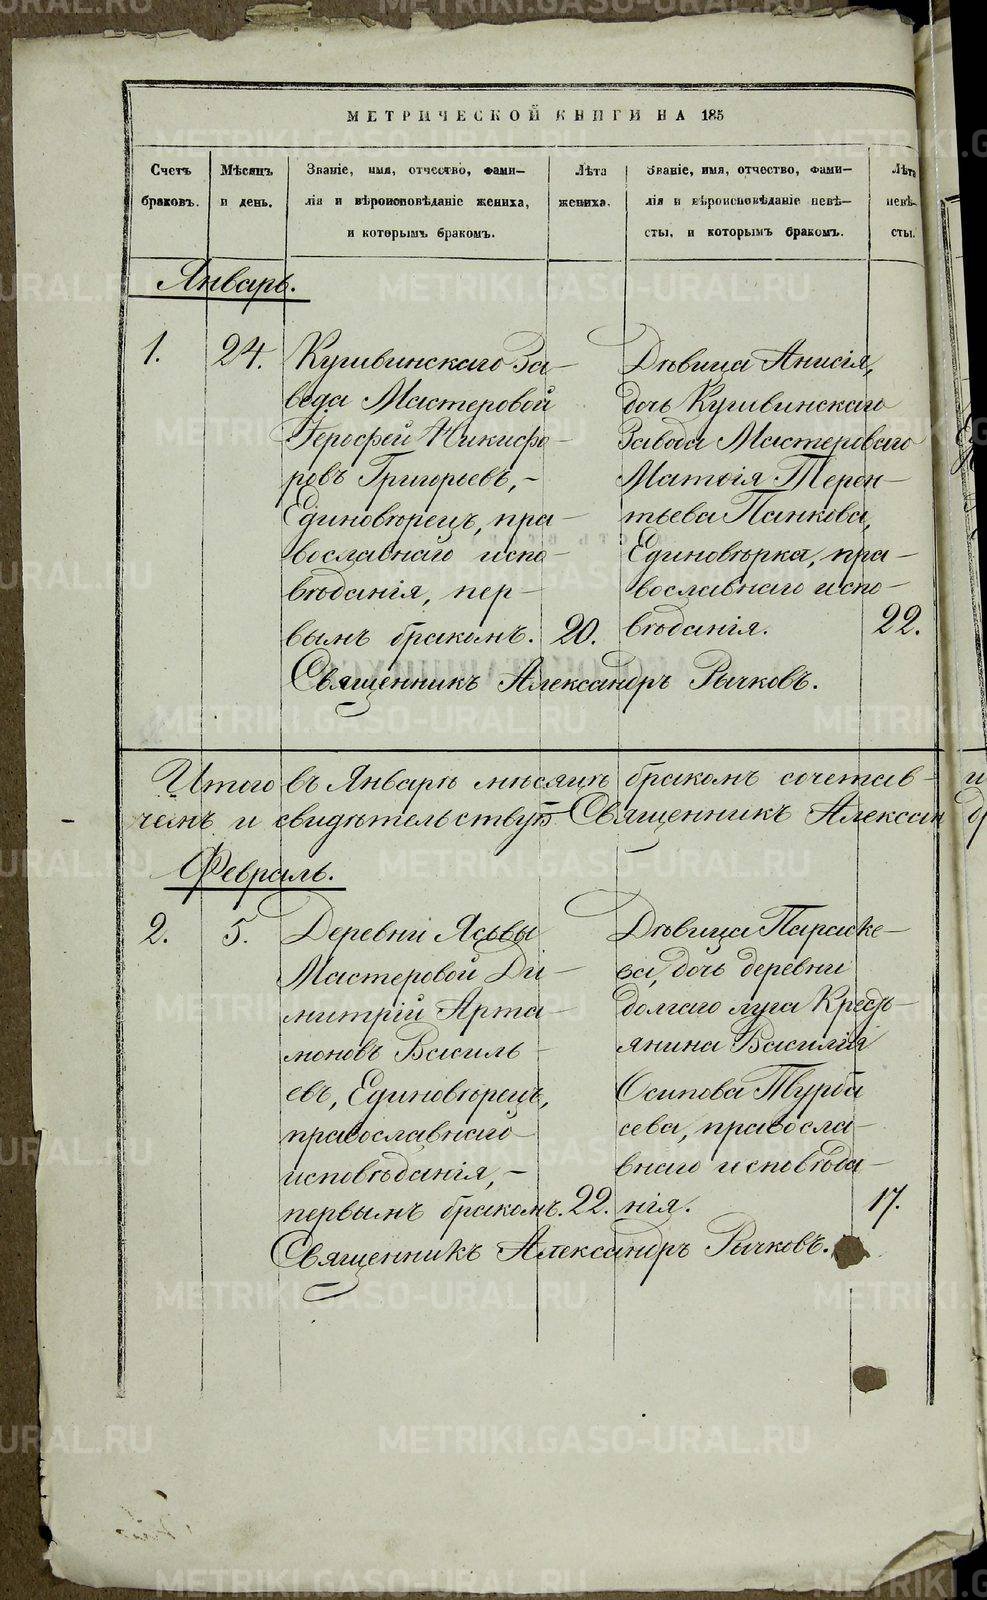 МЕТРИЧЕСКОЙ КНИГИ НА 185
Счетъ браковъ.
Мѣсяцъ и день.
Званіе, имя, отчество, фами-
лія и вѣроисповѣданіе жениха,
и которымъ бракомъ.
Лѣта жениха.
Званіе, имя, отчество, фами-
лія и вѣроисповѣданіе невѣ-
сты, и которымъ бракомъ.
Лѣта невѣ-
сты.
Январь.
1.
24.
Кушвинскаго За-
вода Мастеровой
Герофей Никифо-
ровъ Григорьевъ,-
Единовѣрецъ, пра-
вославнаго испо-
вѣданія, пер-
вымъ бракомъ.
20.
Дѣвица Анисія,
дочь Кушвинскаго
Завода Мастероваго
Матѳія Терен-
тьева Панкова,
Единовѣрка, пра-
вославнаго испо-
вѣданія.
22.
Священникъ Александръ Рычковъ.
Итого въ Январѣ мѣсяцѣ бракомъ сочетав-
чемъ и свидѣтельствую Священникъ Алексан
Февраль.
2.
5.
Деревни Ясьвы
Мастеровой Ди-
митрій Арта-
моновъ Василь-
евъ, Единовѣрецъ,
православнаго
исповѣданія,-
первымъ бракомъ.
22.
Дѣвица Параске-
ва, дочь деревни
долгаго луга Кресть-
янина Василія
Осипова Турба
сева, правосла-
внаго исповѣда-
нія.
17.
Священникъ Александръ Рычковъ.
METRIKI.GASO-URAL.RU